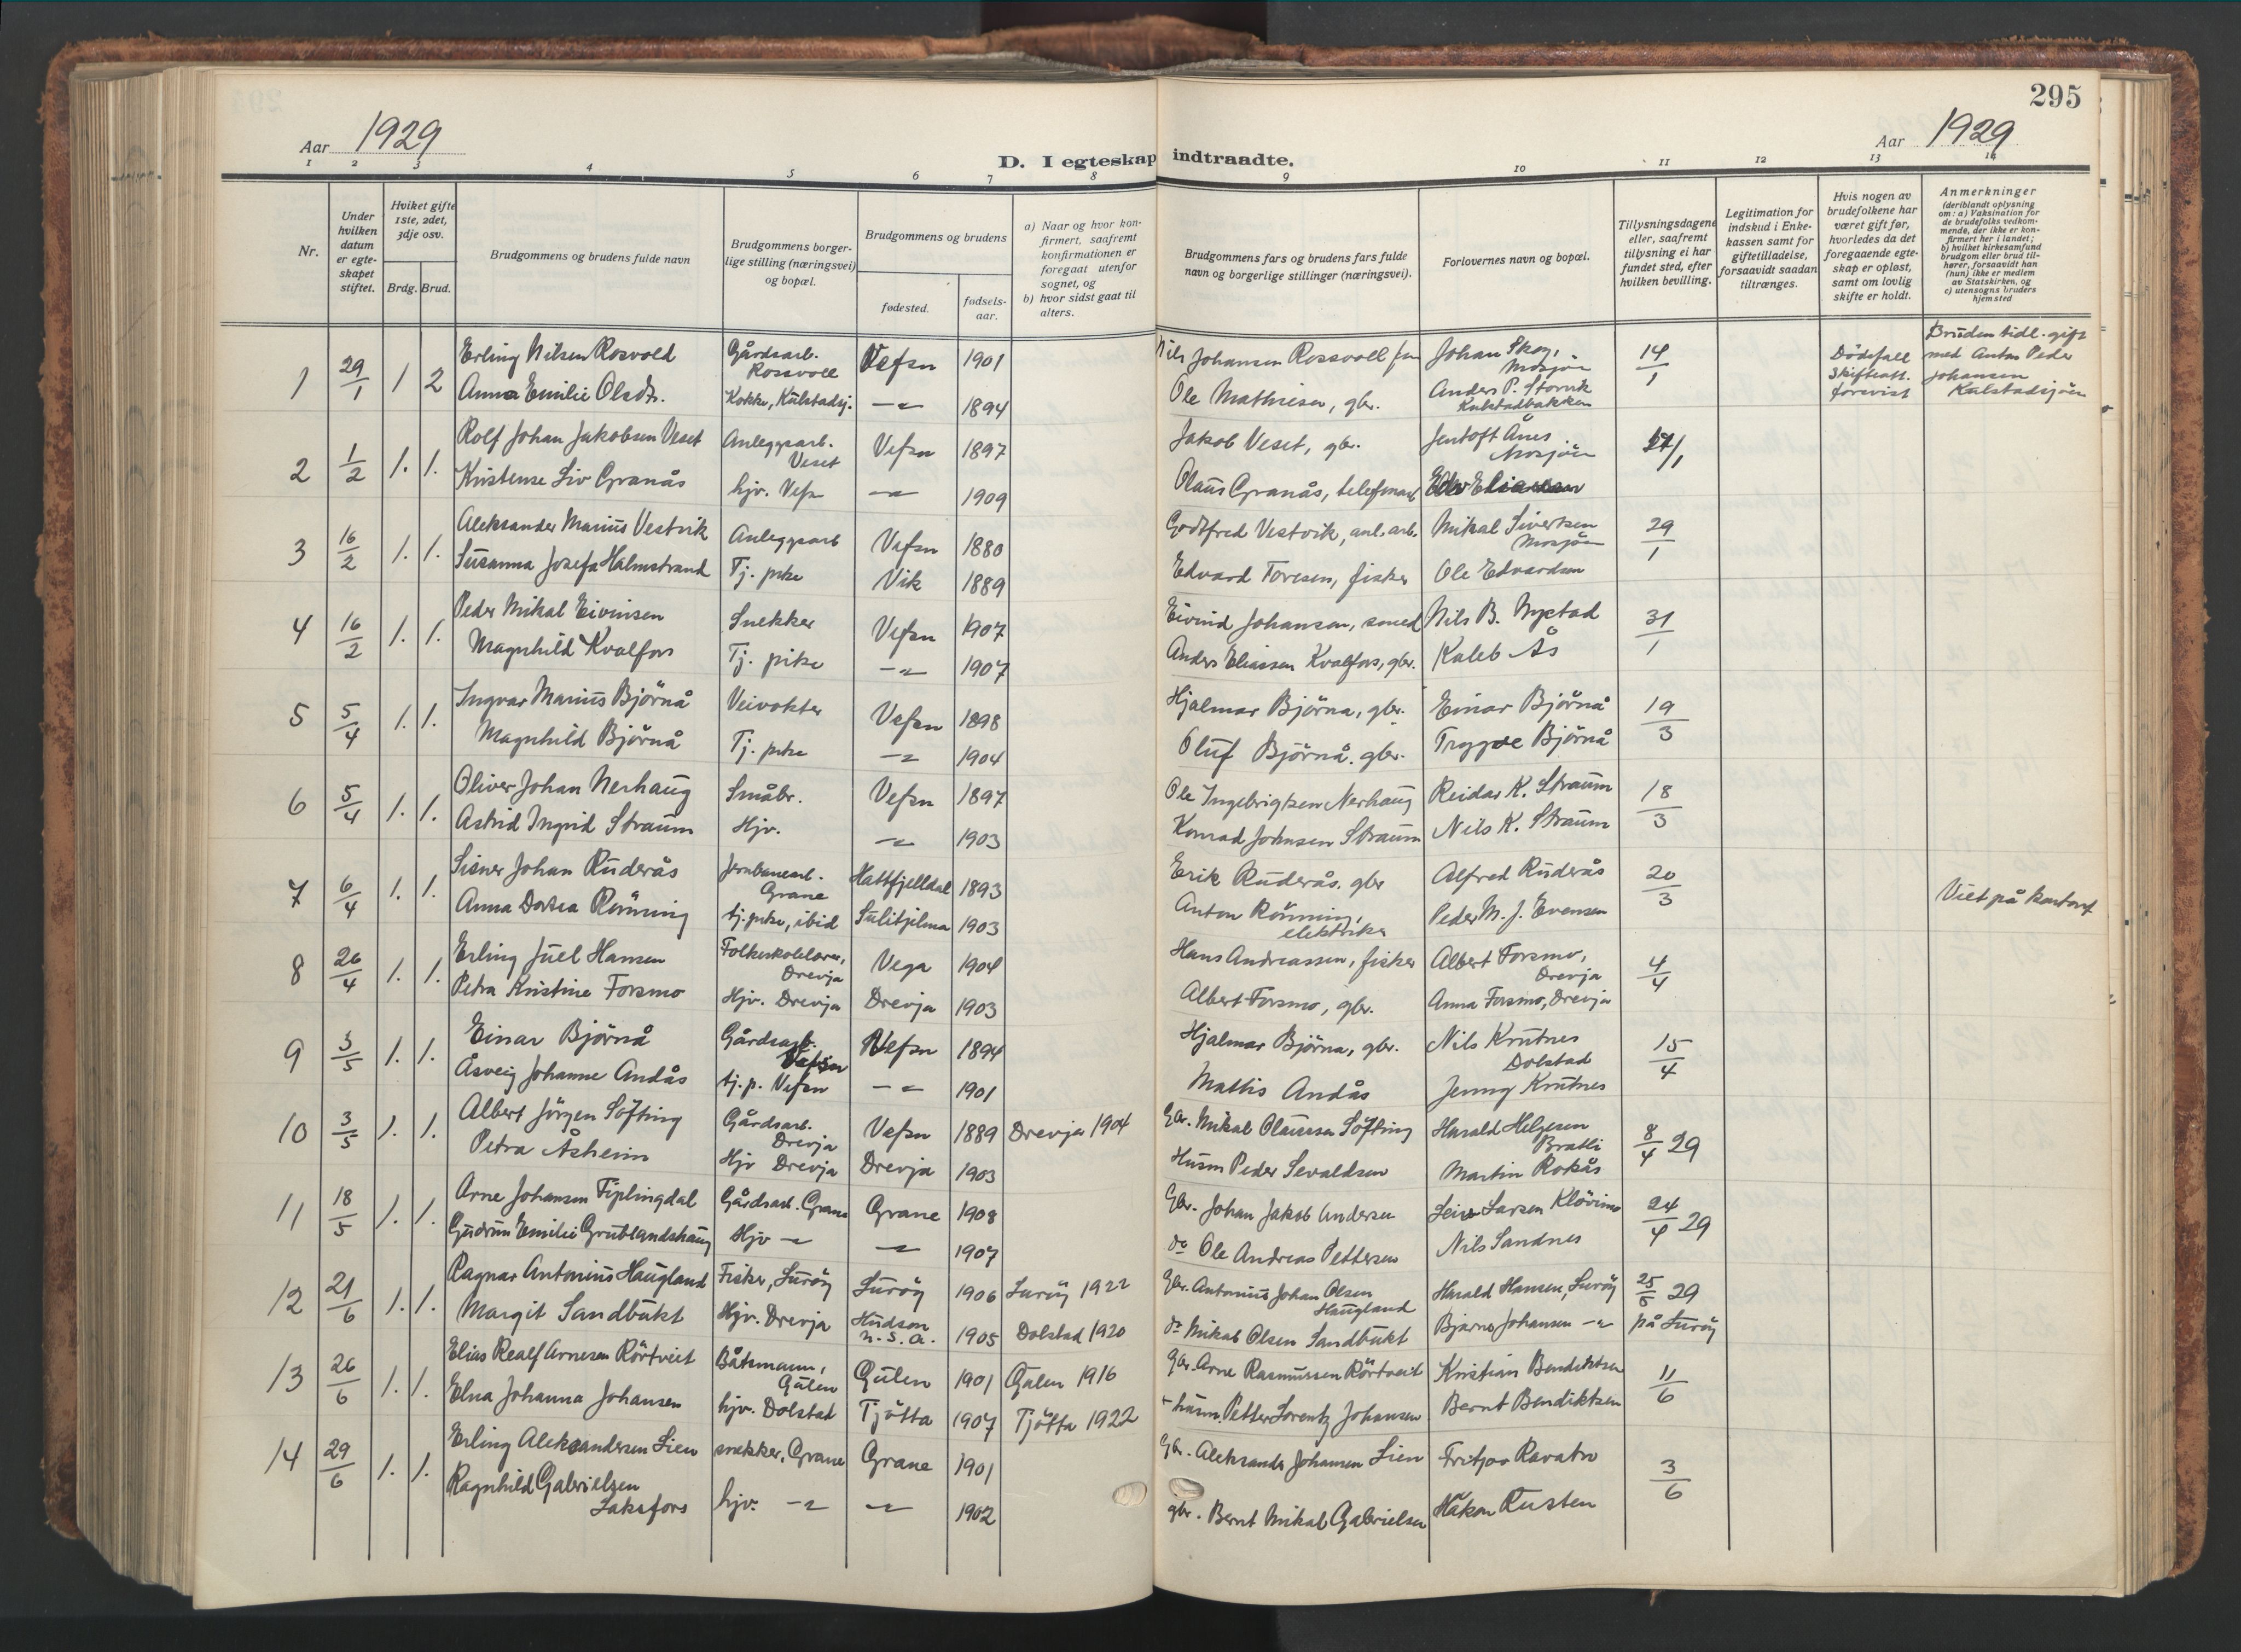 295
Aar 1929
D. I egteskap indtraadte.
Aar 1929
1 2 3 4 5 6 7 8 9 10 11 12 13 14
Nr.
Under hvilken datum er egteskapet stiftet.
Hviket gifte 1ste, 2det, 3dje osv.
Brdg. Brud.
Brudgommens og brudens fulde navn
Brudgommens borgerlige stilling (næringsvei) og bopæl.
Brudgommens og brudens
fødested.
fødselsaar.
a) Naar og hvor konfirmert, saafremt konfirmationen er foregaat utenfor sognet, og
b) hvor sidst gaat til alters.
Brudgommens fars og brudens fars fulde navn og borgerlige stillinger (næringsvei).
Forlovernes navn og bopæl.
Tillysningsdagene eller, saafremt tillysning ei har fundet sted, efter hvilken bevilling.
Legitimation for indskud i Enkekassen samt for giftetilladelse, forsaavidt saadan tiltrænges.
Hvis nogen av brudefolkene har været gift før, hvorledes da det foregaaende egteskap er opløst, samt om lovlig skifte er holdt.
Anmerkninger
(deriblandt oplysning om: a) Vaksination for de brudefolks vedkommende, der ikke er konfirmert her i landet; b) hvilket kirkesamfund brudgom eller brud tilhører, forsaavidt han (hun) ikke er medlem av Statskirken, og c) utensogns bruders hjemsted
1 29/1 1 2 Erling Nilsen Rosvold Gårdsarb. Rossvoll Vefsn 1901 Nils Johansen Rossvoll Johan Skog, Mosjøen 14/1 Dødsfall Skifteatt. forevist Bruden tidl. gift med Anton Peder Johansen Kulstadsjøen
Anna Emilie Olsdtr. Kokke, Kulstadsj. -"- 1894 Ole Mathisen, gbr. Anders P. Storvik Kulstadbakken
2 1/2 1. 1. Rolf Johan Jakobsen Veset Anleggsarb. Veset Vefsn 1897 Jakob Veset, gbr. Jentoft Ånes Mosjøen
Kristense Liv Granås hjv. Vefsn -"- 1909 Olaus Granås,
3 16/2 1. 1. Aleksander Marius Vestvik Anleggsarb Vefsn 1880 Godtfred Vestvik, anl.arb. Mikal Sivertsen Mosjøen 29/1
Susanna Josefa Halmstrand Tj. pike Vik 1889 Edvard Toresen, fisker Ole Edvardsen
4 16/2 1. 1. Peder Mikal Eivinsen Snekker Vefsn 1907 Eivind Johansen, smed Nils B. Nystad 31/1
Magnhild Kvalfors Tj. pike -"- 1907 Anders Eliassen Kvalfors, gbr. Kaleb Ås
5 5/4 1. 1. Ingvar Marius Bjørnå Veivokter Vefsn 1898 Hjalmar Bjørnå, gbr. Einar Bjørnå 19/3
Magnhild Bjørnå Tj. pike -"- 1904 Oluf Bjørnå. gbr. Trygve Bjørnå
6 5/4 1. 1. Oliver Johan Nerhaug Småbr. Vefsn 1897 Ole Ingebrigtsen Nerhaug Reidar K. Straum 18/3
Astrid Ingrid Straum Hjv. -"- 1903 Konrad Johnsen Straum Nils K. Straum
7 6/4 1. 1. Johan Ruderås Jernbanearb. Grane Hattfjelldal 1893 Erik Ruderås. gbr Alfred Ruderås 20/3 Viet på kontoret
Anna Dortea Rønning tj. pike, ibid Sulitjelma 1903 Anton Rønning, elektriker Peder M. J. Evensen
8 26/4 1. 1. Erling Juel Hansen Folkeskolelærer, Drevja Vega 1904 Hans Andreassen, fisker Albert Forsmo, Drevja 4/4
Petra Kristine Forsmo Hjv. Drevja Drevja 1903 Albert Forsmo, gbr. Anna Forsmo, Drevja
9 3/5 1. 1. Einar Bjørnå Gårdsarb. Vefsn Vefsn 1894 Hjalmar Bjørnå, gbr. Nils Krutnes Dolstad 15/4
Åsveig Johanne Andås tj. p. Vefsn -"- 1901 Mathis Andås Jenny Krutnes
10 3/5 1. 1. Albert Jørgen Søfting Gårdsarb. Drevja Vefsn 1889 Drevja 1904 Gbr. Mikal Olaussen Søfting Harald Helgesen Bratli 8/4 29
Petra Åsheim Hjv Drevja Drevja 1903 Husm Peder Sevaldsen Martin Rokås
11 18/5 1. 1. Arne Johansen Fiplingdal Gårdsarb. Grane Grane 1908 Gbr. Johan Jakob Andersen Larsen Kløvimo 24/4 29
Gudrun Emilie Grublandshaug Hjv -"- -"- 1907 do Ole Andreas Pettersen Nils Sandnes
12 21/6 1. 1. Ragnar Antonius Haugland Fisker, Lurøy Lurøy 1906 Lurøy 1922 Gbr. Antonius Johan Olsen Haugland Harald Hansen, Lurøy 25/5 29
Margit Sandbukt Hjv. Drevja Hudson U.S.A. 1905 Dolstad 1920 do Mikal Olsen Sandbukt Bjarne Johansen -"- på Lurøy
13 26/6 1. 1. Elias Realf Arnesen Rørtveit Båtsmann, Gulen Gulen 1901 Gulen 1916 Gbr. Arne Rasmussen Rørtveit Kristian Bendiktsen 11/6
Elna Johanna Johansen hjv. Dolstad Tjøtta 1907 Tjøtta 1922 husm. Petter Lorentz Johansen Bernt Bendiktsen
14 29/6 1. 1. Erling Aleksandersen Lien snekker, Grane Grane 1901 Gbr. Aleksander Johansen Lien Fritjov Ravatn 3/6
Ragnhild Gabrielsen Laksfors hjv. -"- -"- 1902 gbr. Bernt Mikal Gabrielsen Håkon Rusten